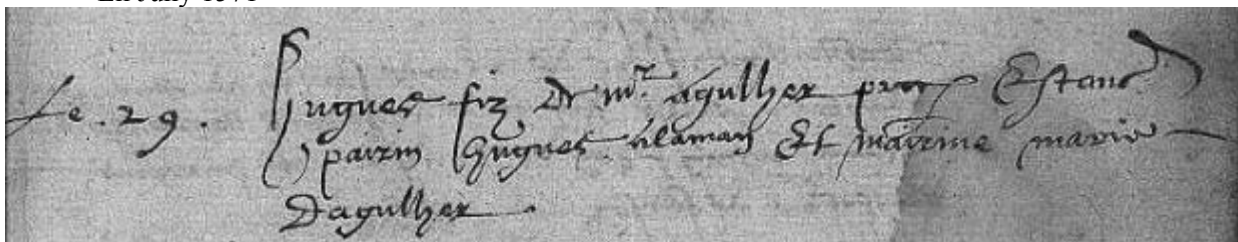 Le . 29 . Hugues fiz de mr. agulher procr Estant
pairin Hugues alaman Et mairine marie
Dagulher .